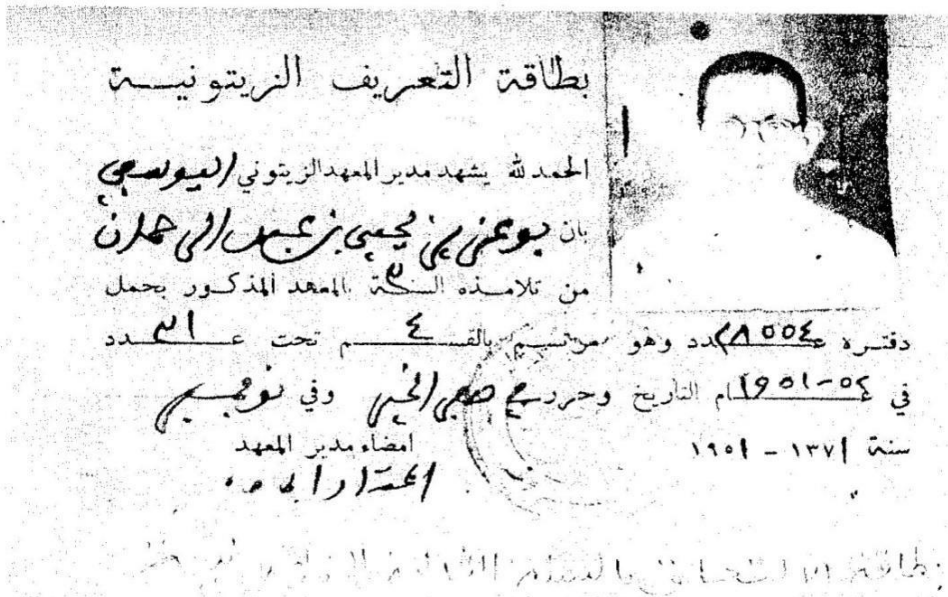 بطاقة التعريف الزيتونيـــــة
الحمد لله يشهد مدير المعهد الزيتوني اليوسفي
بان بوعزيز بن يحيى بن عبد الرحمان
من تلامـذه السـنة ٣ بالمعهد المذكـور يحمل
دفتـره عـ٢٨٥٥٤ـدد وهو مرتسـم بالقسـ٤ـم تحت عـ٣١ـدد
في عـ٥٢-١٩٥١ـام التاريخ وحرر في صفر الخير وفي نوفمبر
سنة ١٣٧١ - ١٩٥١
امضاء مدير المعهد
بطاقة